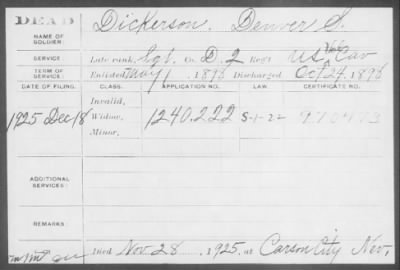 DEAD
NAME OF SOLDIER: Dickerson. Denver S.
SERVICE: Late rank, Sgt. Co. D. 2 Reg't US Vol Cav
TERM OF SERVICE: Enlisted May 1, 1898 Discharged Oct 24, 1898
DATE OF FILING. CLASS. APPLICATION NO. LAW. CERTIFICATE NO.
Invalid,
1925 Dec 18 Widow, 1240.222 S-1-22 970473
Minor,
ADDITIONAL SERVICES:
REMARKS:
Died Nov 28, 1925, at Carson City Nev.